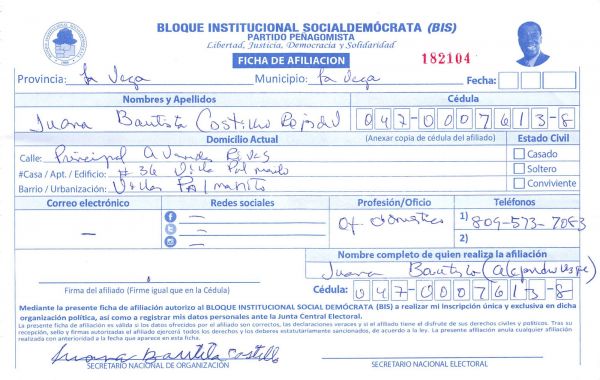 BLOQUE INSTITUCIONAL SOCIALDEMÓCRATA (BIS)
PARTIDO PEÑAGOMISTA
Libertad, Justicia, Democracia y Solidaridad
FICHA DE AFILIACION
182104
Provincia: La Vega Municipio: La Vega Fecha:
Nombres y Apellidos Cédula
Juana Bautista Castillo 047-0007613-8
Domicilio Actual (Anexar copia de cédula del afiliado) Estado Civil
Calle: Principal Casado
#Casa / Apt. / Edificio: # 36 Villa Palmarito Soltero
Barrio / Urbanización: Villa Palmarito Conviviente
Correo electrónico Redes sociales Profesión/Oficio Teléfonos
— — Of. domestico 1) 809-573-7083
— 2)
— Nombre completo de quien realiza la afiliación
Juana Bautista
Firma del afiliado (Firme igual que en la Cédula) Cédula: 047-0007613-8
Mediante la presente ficha de afiliación autorizo al BLOQUE INSTITUCIONAL SOCIAL DEMÓCRATA (BIS) a realizar mi inscripción única y exclusiva en dicha
organización política, así como a registrar mis datos personales ante la Junta Central Electoral.
La presente ficha de afiliación es válida si los datos ofrecidos por el afiliado son correctos, las declaraciones veraces y si el afiliado tiene el disfrute de sus derechos civiles y políticos. Tras su
recepción, sello y firmas autorizadas el afiliado ejercerá todos los derechos y los deberes estatutariamente sancionados, de acuerdo a la ley. La presente afiliación anula cualquier afiliación
realizada con anterioridad a la fecha que aparece en esta ficha.
Juana Bautista Castillo
SECRETARIO NACIONAL DE ORGANIZACIÓN SECRETARIO NACIONAL ELECTORAL